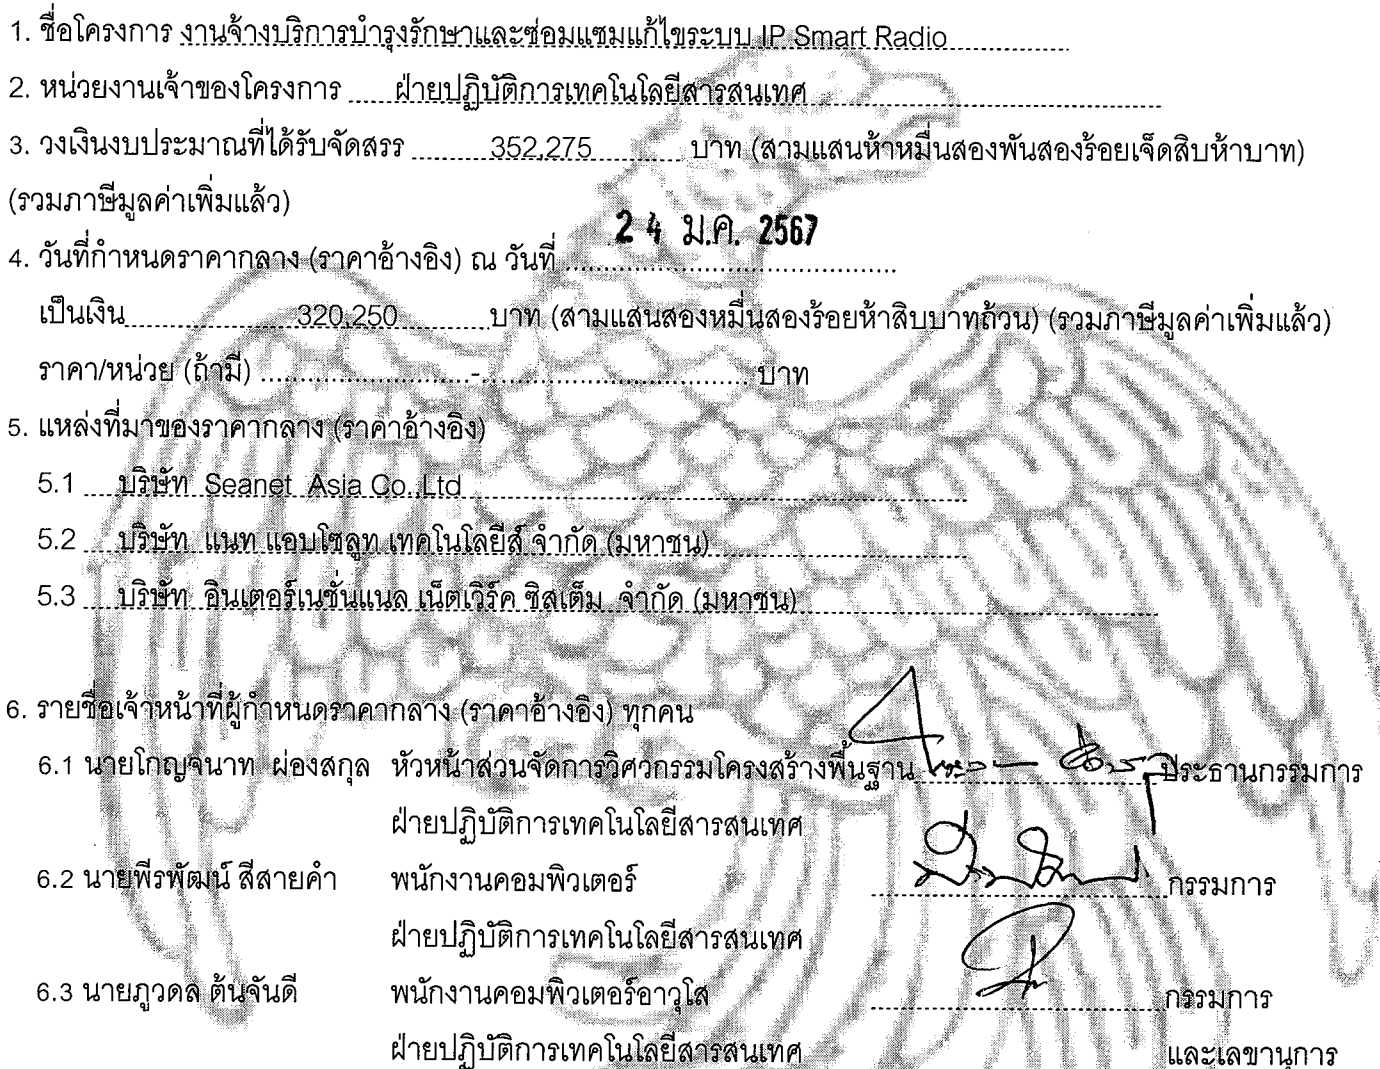 1. ชื่อโครงการ งานจ้างบริการบำรุงรักษาและซ่อมแซมแก้ไขระบบ IP Smart Radio
2. หน่วยงานเจ้าของโครงการ ฝ่ายปฏิบัติการเทคโนโลยีสารสนเทศ
3. วงเงินงบประมาณที่ได้รับจัดสรร 352,275 บาท (สามแสนห้าหมื่นสองพันสองร้อยเจ็ดสิบห้าบาท)
(รวมภาษีมูลค่าเพิ่มแล้ว)
4. วันที่กำหนดราคากลาง (ราคาอ้างอิง) ณ วันที่ 24 ม.ค. 2567
เป็นเงิน 320,250 บาท (สามแสนสองหมื่นสองร้อยห้าสิบบาทถ้วน) (รวมภาษีมูลค่าเพิ่มแล้ว)
ราคา/หน่วย (ถ้ามี) - บาท
5. แหล่งที่มาของราคากลาง (ราคาอ้างอิง)
5.1 บริษัท Seanet Asia Co.,Ltd
5.2 บริษัท แนท แอบโซลูท เทคโนโลยีส์ จำกัด (มหาชน)
5.3 บริษัท อินเตอร์เนชั่นแนล เน็ตเวิร์ค ซิสเต็ม จำกัด (มหาชน)
6. รายชื่อเจ้าหน้าที่ผู้กำหนดราคากลาง (ราคาอ้างอิง) ทุกคน
6.1 นายโกญจนาท ผ่องสกุล หัวหน้าส่วนจัดการวิศวกรรมโครงสร้างพื้นฐาน ประธานกรรมการ
ฝ่ายปฏิบัติการเทคโนโลยีสารสนเทศ
6.2 นายพีรพัฒน์ สีสายคำ พนักงานคอมพิวเตอร์ กรรมการ
ฝ่ายปฏิบัติการเทคโนโลยีสารสนเทศ
6.3 นายภูวดล ต้นจันดี พนักงานคอมพิวเตอร์อาวุโส กรรมการ
ฝ่ายปฏิบัติการเทคโนโลยีสารสนเทศ และเลขานุการ